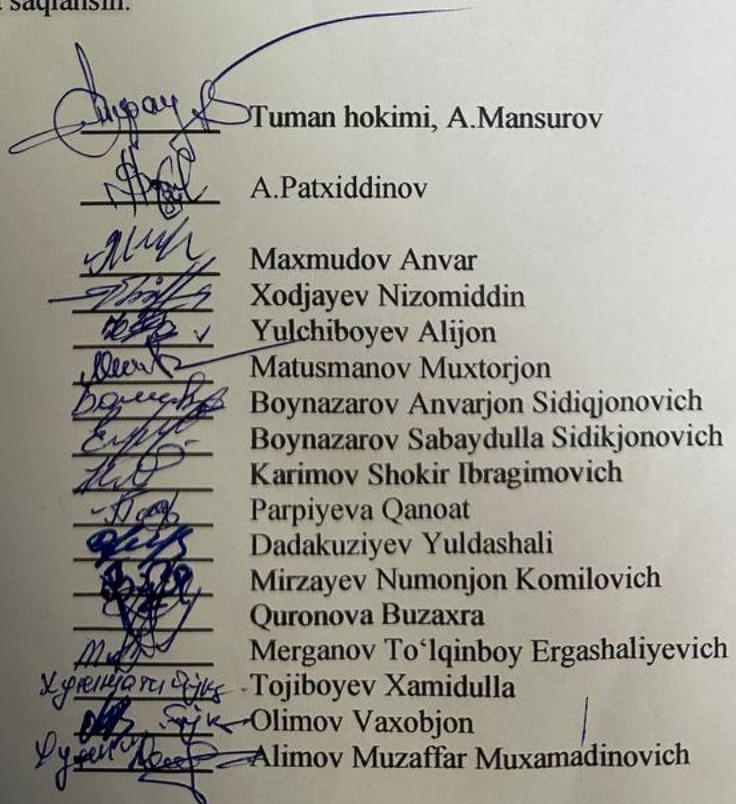 saqlansin.
Tuman hokimi, A.Mansurov
A.Patxiddinov
Maxmudov Anvar
Xodjayev Nizomiddin
Yulchiboyev Alijon
Matusmanov Muxtorjon
Boynazarov Anvarjon Sidiqjonovich
Boynazarov Sabaydulla Sidikjonovich
Karimov Shokir Ibragimovich
Parpiyeva Qanoat
Dadakuziyev Yuldashali
Mirzayev Numonjon Komilovich
Quronova Buzaxra
Merganov To‘lqinboy Ergashaliyevich
Tojiboyev Xamidulla
Olimov Vaxobjon
Alimov Muzaffar Muxamadinovich